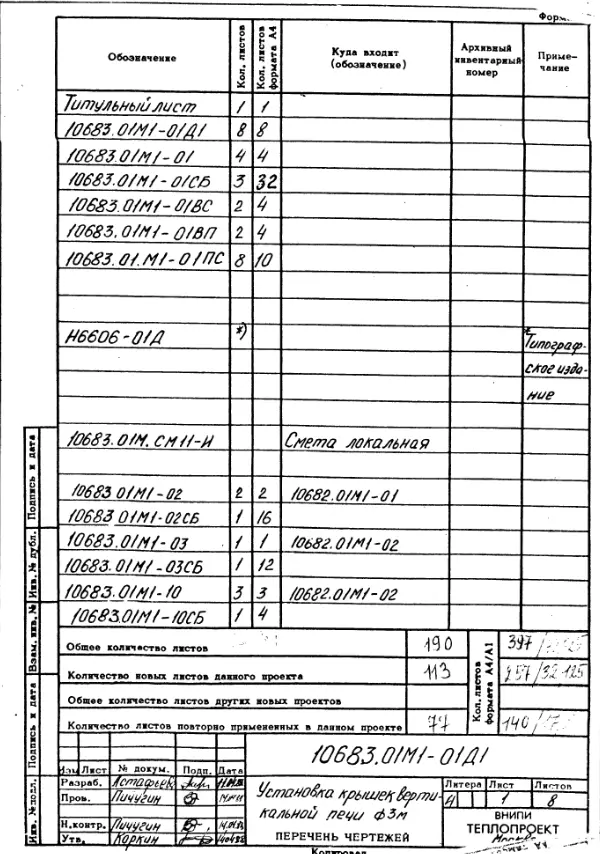 Обозначение Кол. листов Кол. листов формата А4 Куда входит (обозначение) Архивный инвентарный номер Примечание
Титульный лист 1 1
10683.01М1-01Д1 8 8
10683.01М1-01 4 4
10683.01М1-01СБ 3 32
10683.01М1-01ВС 2 4
10683.01М1-01ВП 2 4
10683.01.М1-01ПС 8 10
Н6606-01Д *) *Типограф-
ское изда-
ние
10683.01М.СМ11-И Смета локальная
10683 01М1-02 2 2 10682.01М1-01
10683 01М1-02СБ 1 16
10683.01М1-03 1 1 10682.01М1-02
10683.01М1-03СБ 1 12
10683.01М1-10 3 3 10682.01М1-02
10683.01М1-10СБ 1 4
Общее количество листов 190 397
Количество новых листов данного проекта 113
Общее количество листов других новых проектов
Количество листов повторно примененных в данном проекте 77 140
Кол. листов формата А4/А1
10683.01М1-01Д1
Изм Лист № докум. Подп. Дата
Разраб. Астафьев
Пров. Пичугин
Н.контр. Пичугин
Утв. Коркин
Установка крышек верти-
кальной печи ф3м
ПЕРЕЧЕНЬ ЧЕРТЕЖЕЙ
Литера Лист Листов
А 1 8
ВНИПИ
ТЕПЛОПРОЕКТ
Москва
Копировал
Подпись и дата
Инв. № дубл.
Взам. инв. №
Подпись и дата
Инв. № подл.